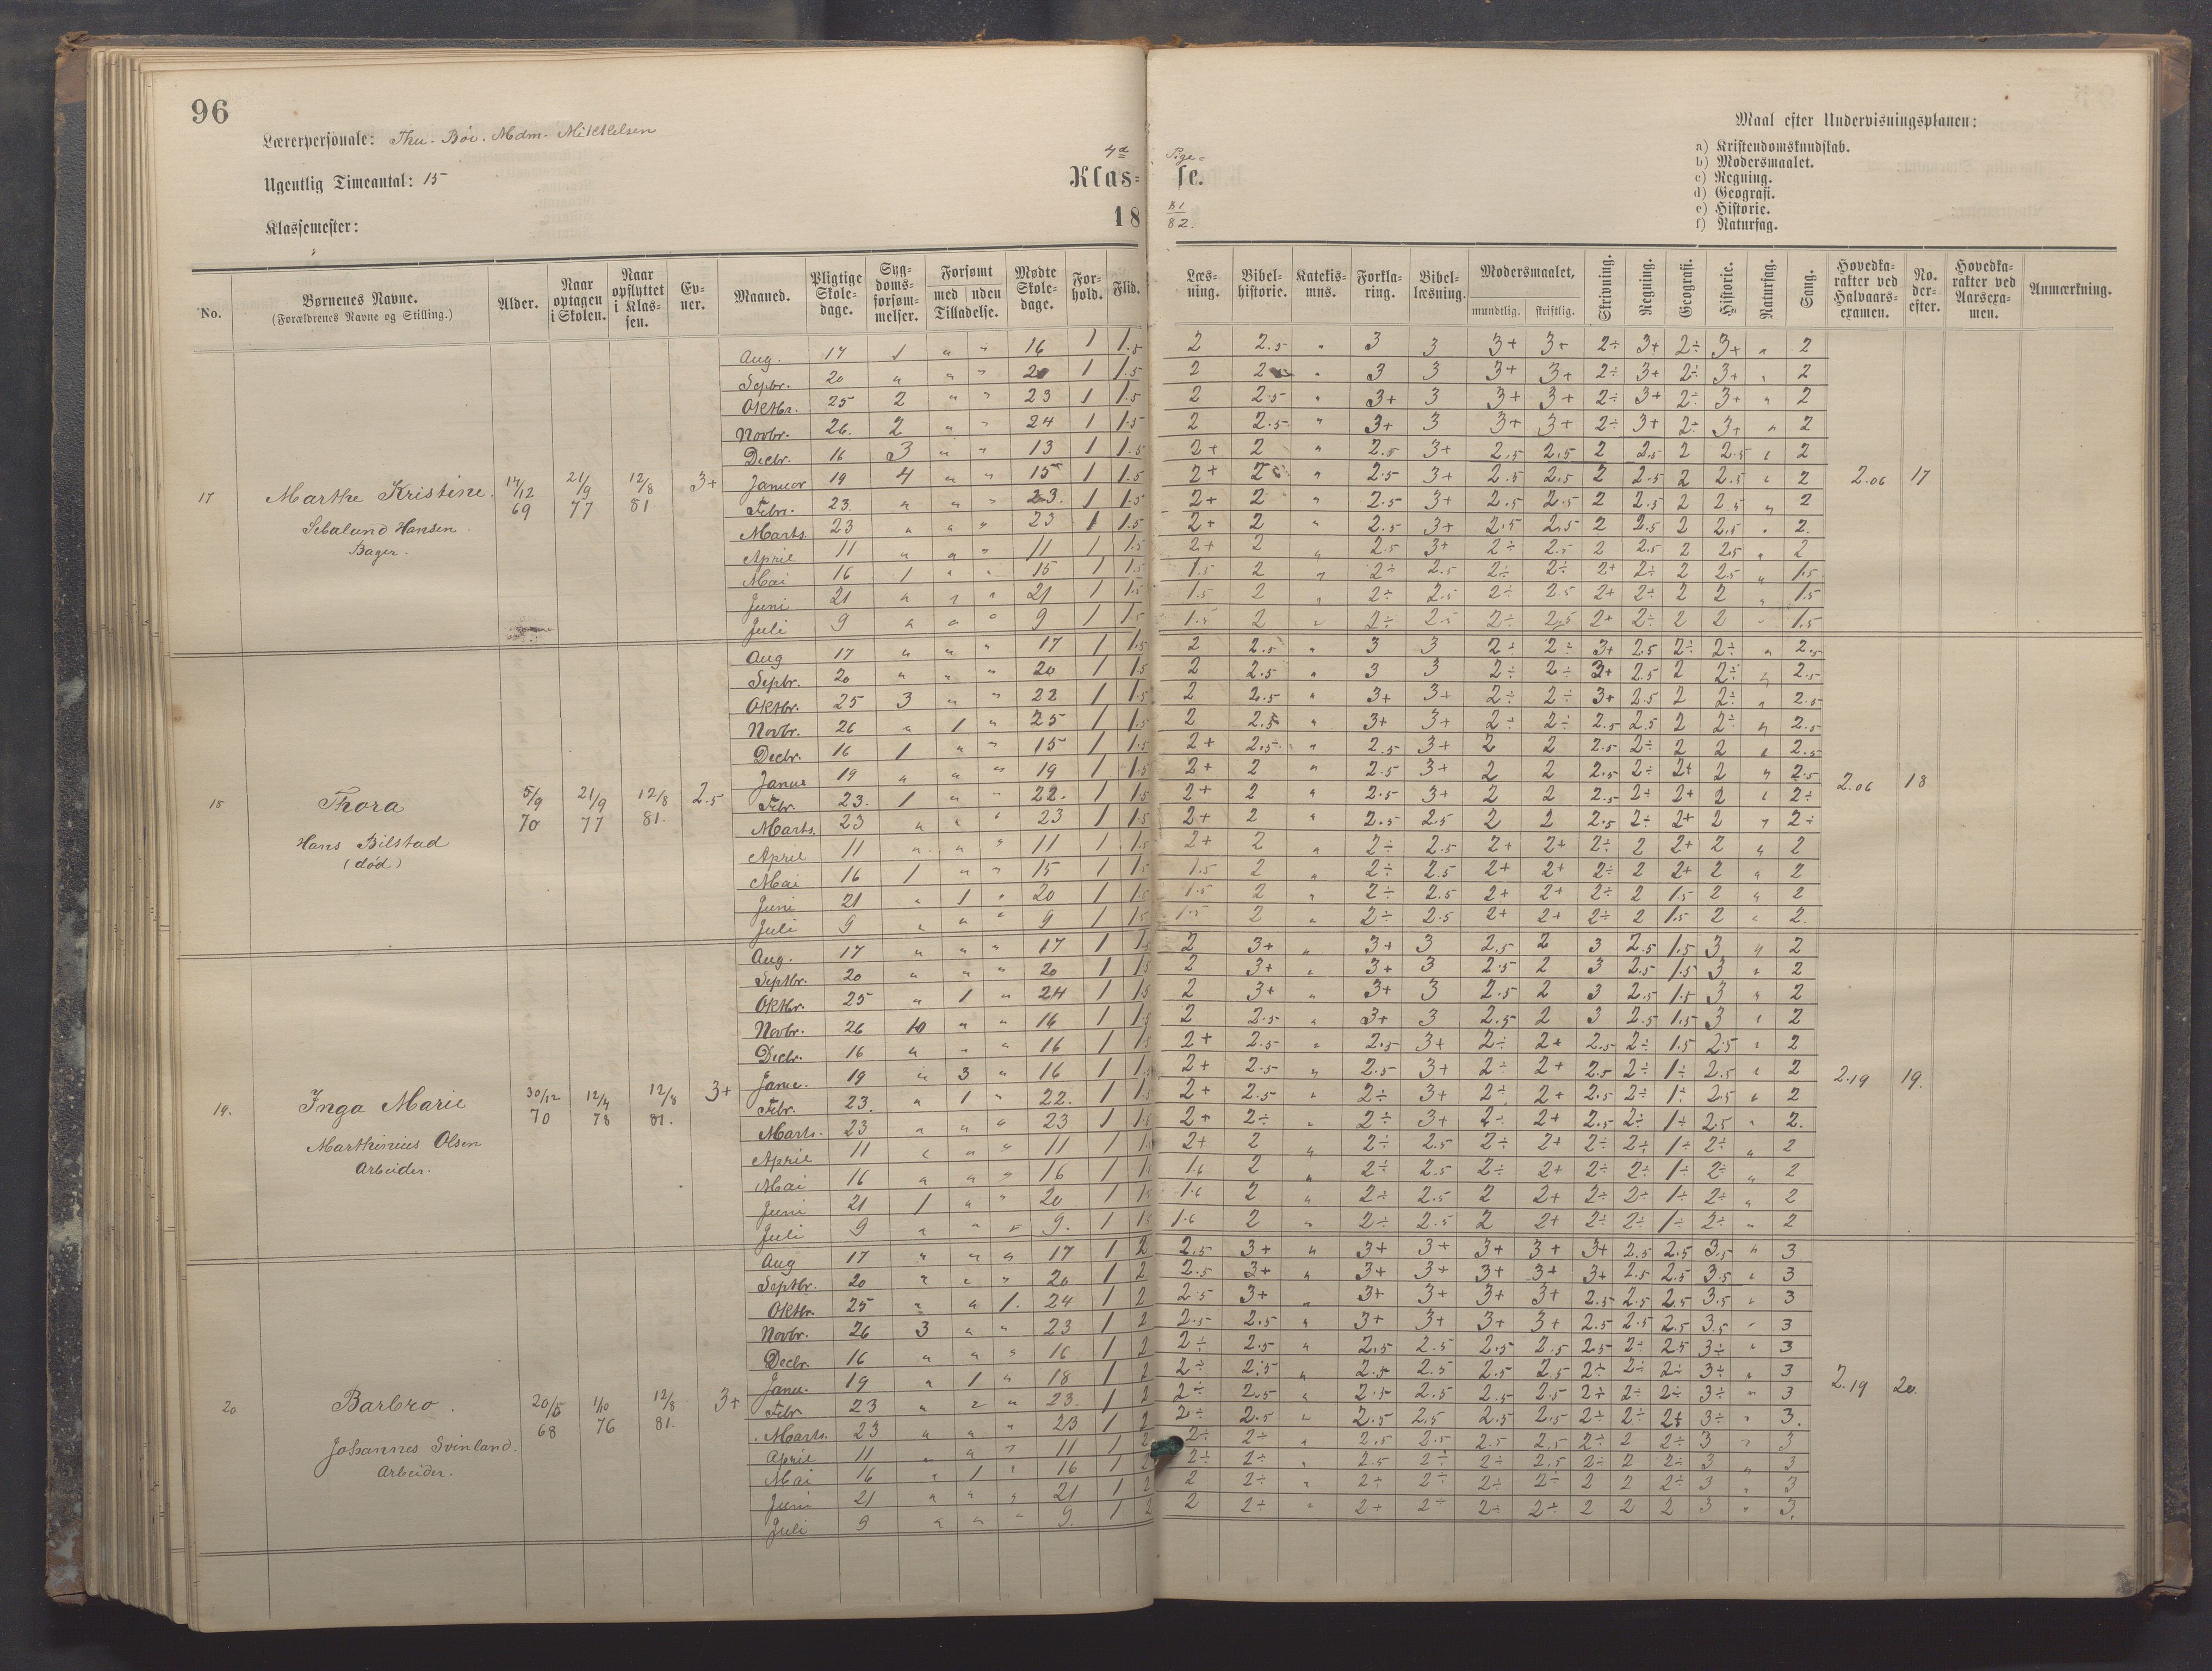 96
Lærerpersonale: Thu. Böe. Mdm. Mikkelsen
Ugentlig Timeantal: 15
Klassemester:
4de Pige=
Klas= se.
18 81/82.
Maal efter Undervisningsplanen:
a) Kristendomskundskab.
b) Modersmaalet.
c) Regning.
d) Geografi.
e) Historie.
f) Naturfag.
No. | Børnenes Navne. (Forældrenes Navne og Stilling.) | Alder. | Naar optagen i Skolen. | Naar opflyttet i Klas=sen. | Ev=ner. | Maaned. | Pligtige Skole=dage. | Syg=doms=forsøm=melser. | Forsømt med | uden Tilladelse. | Mødte Skole=dage. | For=hold. | Flid. | Læs=ning. | Bibel=historie. | Katekis=mus. | Forkla=ring. | Bibel=læsning. | Modersmaalet, mundtlig. | skriftlig. | Skrivning. | Regning. | Geografi. | Historie. | Naturfag. | Sang. | Hovedka=rakter ved Halvaars=examen. | No. der=efter. | Hovedka=rakter ved Aarsexa=men. | Anmærkning.
Aug. 17 1 " " 16 1 1.5 2 2.5 " 3 3 3+ 3+ 2÷ 3+ 2÷ 3+ " 2
Sepbr. 20 " " " 20 1 1.5 2 2.5 " 3 3 3+ 3+ 2÷ 3+ 2÷ 3+ " 2
Oktbr. 25 2 " " 23 1 1.5 2 2.5 " 3+ 3 3+ 3+ 2÷ 3+ 2÷ 3+ " 2
Novbr. 26. 2 " " 24 1 1.5 2 2.5 " 3+ 3 3+ 3+ 2÷ 3+ 2÷ 3+ " 2
Decbr. 16 3 " " 13 1 1.5 2+ 2 " 2.5 3+ 2.5 2.5 2 2.5 2 2.5 " 2
17 Marthe Kristine. 14/12 69 21/9 77 12/8 81. 3+ Januar 19 4 " " 15 1 1.5 2+ 2 " 2.5 3+ 2.5 2.5 2 2.5 2 2.5 " 2 2.06 17
Febr. 23. " " " 23. 1 1.5 2+ 2 " 2.5 3+ 2.5 2.5 2 2.5 2 2.5 " 2
Sebalund Hansen. Marts. 23 " " " 23 1 1.5 2+ 2 " 2.5 3+ 2.5 2.5 2 2.5 2 2.5 " 2.
Bager. April 11 " " " 11 1 1.5 2+ 2 " 2.5 3+ 2÷ 2.5 2 2.5 2 2.5 " 2
Mai 16 1 " " 15 1 1.5 1.5 2 " 2÷ 2.5 2÷ 2÷ 2+ 2÷ 2 2.5 " 1.5
Juni 21 " " " 21 1 1.5 1.5 2 " 2÷ 2.5 2÷ 2.5 2+ 2÷ 2 2 " 1.5
Juli 9 " " " 9 1 1.5 1.5 2 " 2÷ 2.5 2÷ 2.5 2+ 2÷ 2 2 " 1.5
Aug 17 " " " 17 1 1.5 2 2.5 " 3 3 2÷ 2÷ 3+ 2.5 2÷ 2÷ " 2.5
Sepbr. 20 " " " 20 1 1.5 2 2.5 " 3 3 2÷ 2÷ 3+ 2.5 2 2÷ " 2.5
Oktbr. 25 3 " " 22 1 1.5 2 2.5 " 3+ 3+ 2÷ 2÷ 3+ 2.5 2 2÷ " 2.5
Novbr. 26 " 1 " 25 1 1.5 2 2.5 " 3+ 3+ 2÷ 2÷ 2.5 2.5 2 2÷ " 2.5
Decbr. 16 1 " " 15 1 1.5 2+ 2.5 " 2.5 3+ 2 2 2.5 2÷ 2 2 " 2.5
Janua 19 " " " 19 1 1.5 2+ 2 " 2.5 3+ 2 2 2.5 2÷ 2+ 2 " 2.5
18 Thora 5/9 70 21/9 77 12/8 81. 2.5 Febr. 23. 1 " " 22. 1 1.5 2+ 2 " 2.5 3+ 2 2 2.5 2÷ 2+ 2 " 2÷ 2.06 18
Marts. 23 " " " 23 1 1.5 2+ 2 " 2.5 2.5 2 2 2.5 2÷ 2+ 2 " 2÷
Hans Bilstad April 11 " " " 11 1 1.5 2+ 2 " 2÷ 2.5 2+ 2+ 2÷ 2 2+ 2 " 2
(död) Mai 16 1 " " 15 1 1.5 1.5 2 " 2÷ 2.5 2+ 2+ 2÷ 2 2+ 2 " 2
Juni 21 " 1 " 20 1 1.5 1.5 2 " 2÷ 2.5 2+ 2+ 2÷ 2 1.5 2 " 2
Juli 9 " " " 9 1 1.5 1.5 2 " 2÷ 2.5 2+ 2+ 2÷ 2 1.5 2 " 2.
Aug. 17 " " " 17 1 1.5 2 3+ " 3+ 3 2.5 2 3 2.5 1.5 3 " 2
Septbr. 20 " " " 20 1 1.5 2 3+ " 3+ 3 2.5 2 3 2.5 1.5 3 " 2
Oktbr. 25 " 1 " 24 1 1.5 2 3+ " 3+ 3 2.5 2 3 2.5 1.5 3 " 2
Novbr. 26 10 " " 16 1 1.5 2 2.5 " 3+ 3 2.5 2 3 2.5 1.5 3 " 2
Decbr. 16 " " " 16 1 1.5 2+ 2.5 " 2.5 3+ 2÷ 2+ 2.5 2÷ 1.5 2.5 " 2
Janu. 19 " 3 " 16 1 1.5 2+ 2.5 " 2.5 3+ 2÷ 2+ 2.5 2÷ 1÷ 2.5 " 2
19. Inga Marie 30/12 70 12/4 78 12/8 81. 3+ Febr. 23. " 1 " 22. 1 1.5 2+ 2.5 " 2÷ 3+ 2÷ 2+ 2.5 2÷ 1÷ 2.5 " 2 2.19 19.
Marts. 23 " " " 23 1 1.5 2+ 2÷ " 2÷ 3+ 2÷ 2+ 2.5 2÷ 1÷ 2.5 " 2.
Marthinius Olsen April 11 " " " 11 1 1.5 2+ 2 " 2÷ 2.5 2÷ 2+ 2÷ 2÷ 1÷ 2÷ " 2
Arbeider. Mai 16 " " " 16 1 1.5 1.6 2 " 2÷ 2.5 2÷ 2+ 2÷ 2÷ 1÷ 2÷ " 2
Juni 21 1 " " 20 1 1.5 1.6 2 " 2÷ 2.5 2 2+ 2÷ 2÷ 1÷ 2÷ " 2
Juli 9 " " " 9. 1 1.5 1.6 2 " 2÷ 2.5 2 2+ 2÷ 2÷ 1÷ 2÷ " 2
Aug 17 " " " 17 1 2 2.5 3+ " 3+ 3+ 3+ 3+ 3+ 2.5 2.5 3.5 " 3
Septbr. 20 " " " 20 1 2 2.5 3+ " 3+ 3+ 3+ 3+ 3+ 2.5 2.5 3.5 " 3
Oktbr. 25 " " 1. 24 1 2 2.5 3+ " 3+ 3+ 3+ 3+ 2.5 2.5 2.5 3.5 " 3
Novbr. 26 3 " " 23 1 2 2.5 2.5 " 3+ 3+ 3+ 3+ 2.5 2.5 2.5 3.5 " 3
Decbr. 16 " " " 16 1 2 2÷ 2.5 " 2.5 2.5 2.5 2.5 2.5 2÷ 2.5 3÷ " 3
Janu. 19 " 1 " 18 1 2 2÷ 2.5 " 2.5 2.5 2.5 2.5 2÷ 2÷ 2÷ 3÷ " 3
20 Barbro. 20/5 68 1/10 76 12/8 81. 3+ Febr 23 " " " 23. 1 2 2÷ 2.5 " 2.5 2.5 2.5 2.5 2÷ 2÷ 2÷ 3÷ " 3 2.19 20.
Marts. 23 " " " 23 1 2 2÷ 2.5 " 2.5 2.5 2.5 2.5 2÷ 2÷ 2÷ 3÷ " 3.
Johannes Svinland. April 11 " " " 11 1 2 2÷ 2÷ " 2.5 2.5 2.5 2.5 2÷ 2 2÷ 3 " 3
Arbeider. Mai 16 " 1 " 16 1 2 2÷ 2÷ " 2.5 2÷ 2÷ 2.5 2÷ 2 2÷ 3 " 3
Juni 21 " " " 21 1 2 2 2÷ " 2÷ 2÷ 2÷ 2÷ 2 2 2÷ 3 " 3
Juli 9 " " " 9. 1 2 2 2÷ " 2+ 2÷ 2÷ 2÷ 2 2 2 3 " 3.